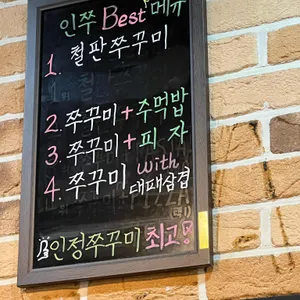 인쭈 Best 메뉴
1. 철판쭈꾸미
2. 쭈꾸미+주먹밥
3. 쭈꾸미+피자
4. 쭈꾸미 with 대패삼겹
인정쭈꾸미 최고!